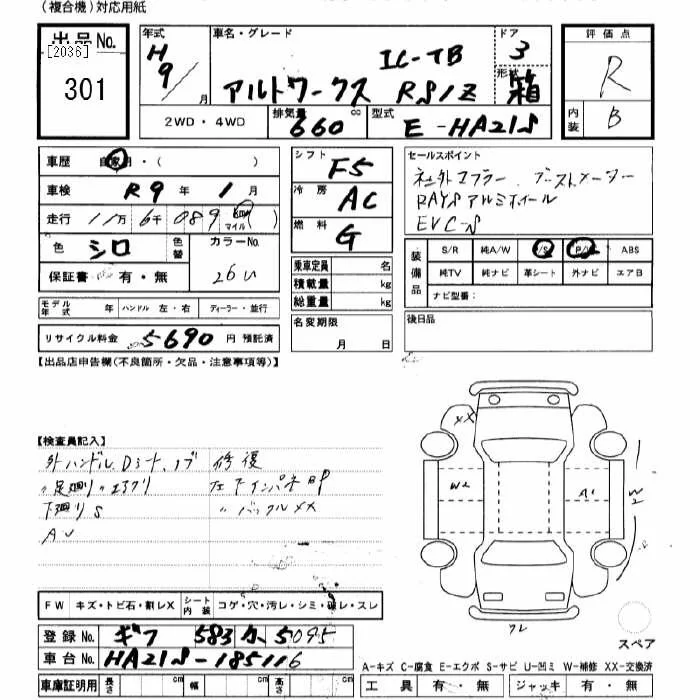 (複合機)対応用紙
出品No.
[2036]
301
年式
H9/ 月
車名・グレード
IC-TB
アルトワークス RS/Z
ドア
3
形状
箱
評価点
R
内装
B
2WD・4WD
排気量 660 cc
型式 E-HA21S
車歴 自家用・( )
車検 R9年 1月
走行 11万6千089 km マイル ( )
色 シロ
色替
カラーNo.
26U
保証書 有・無
シフト F5
冷房 AC
燃料 G
セールスポイント
社外マフラー ブーストメーター
RAYSアルミホイール
EVC-S
装備品
S/R 純A/W P/S P/W ABS
純TV 純ナビ 革シート 外ナビ エアB
ナビ型番:
乗車定員 名
積載量 kg
総重量 kg
モデル年式 年 ハンドル 左・右 ディーラー・並行
リサイクル料金 5690 円 預託済
名変期限
月 日
後日品
【出品店申告欄(不良箇所・欠品・注意事項等)】
【検査員記入】
外ハンドル、Dシート、ノブ 修復
〃足廻り〃エアクリ 左下インパネ
下廻りS 〃バックルXX
AU
XX
W2
A1
W2
FW キズ・トビ石・割レX
シート内装 コゲ・穴・汚レ・シミ・破レ・スレ
登録No. ギフ 583 か 5095
車台No. HA21S-185116
車庫証明用 長さ cm 幅 cm 高さ cm
スペア
A-キズ C-腐食 E-エクボ S-サビ U-凹ミ W-補修 XX-交換済
工具 有・無 ジャッキ 有・無